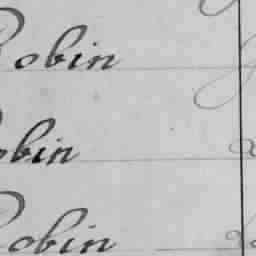 Robin
obin
Robin